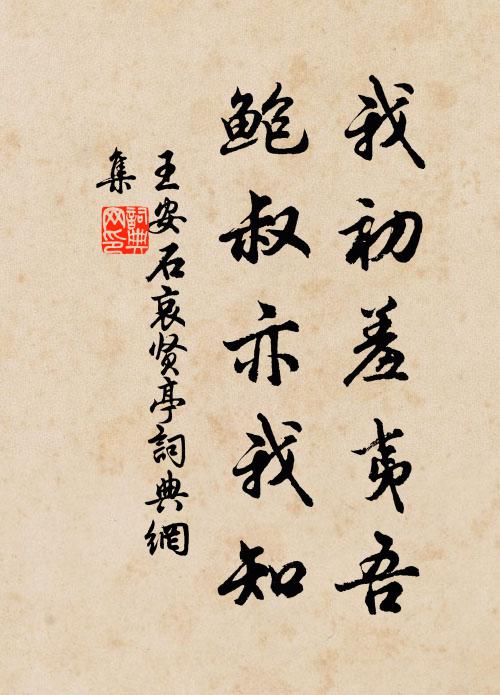 我初羞夷吾
鲍叔亦我知
王安石哀贤亭詞典網
集
詞典
网印